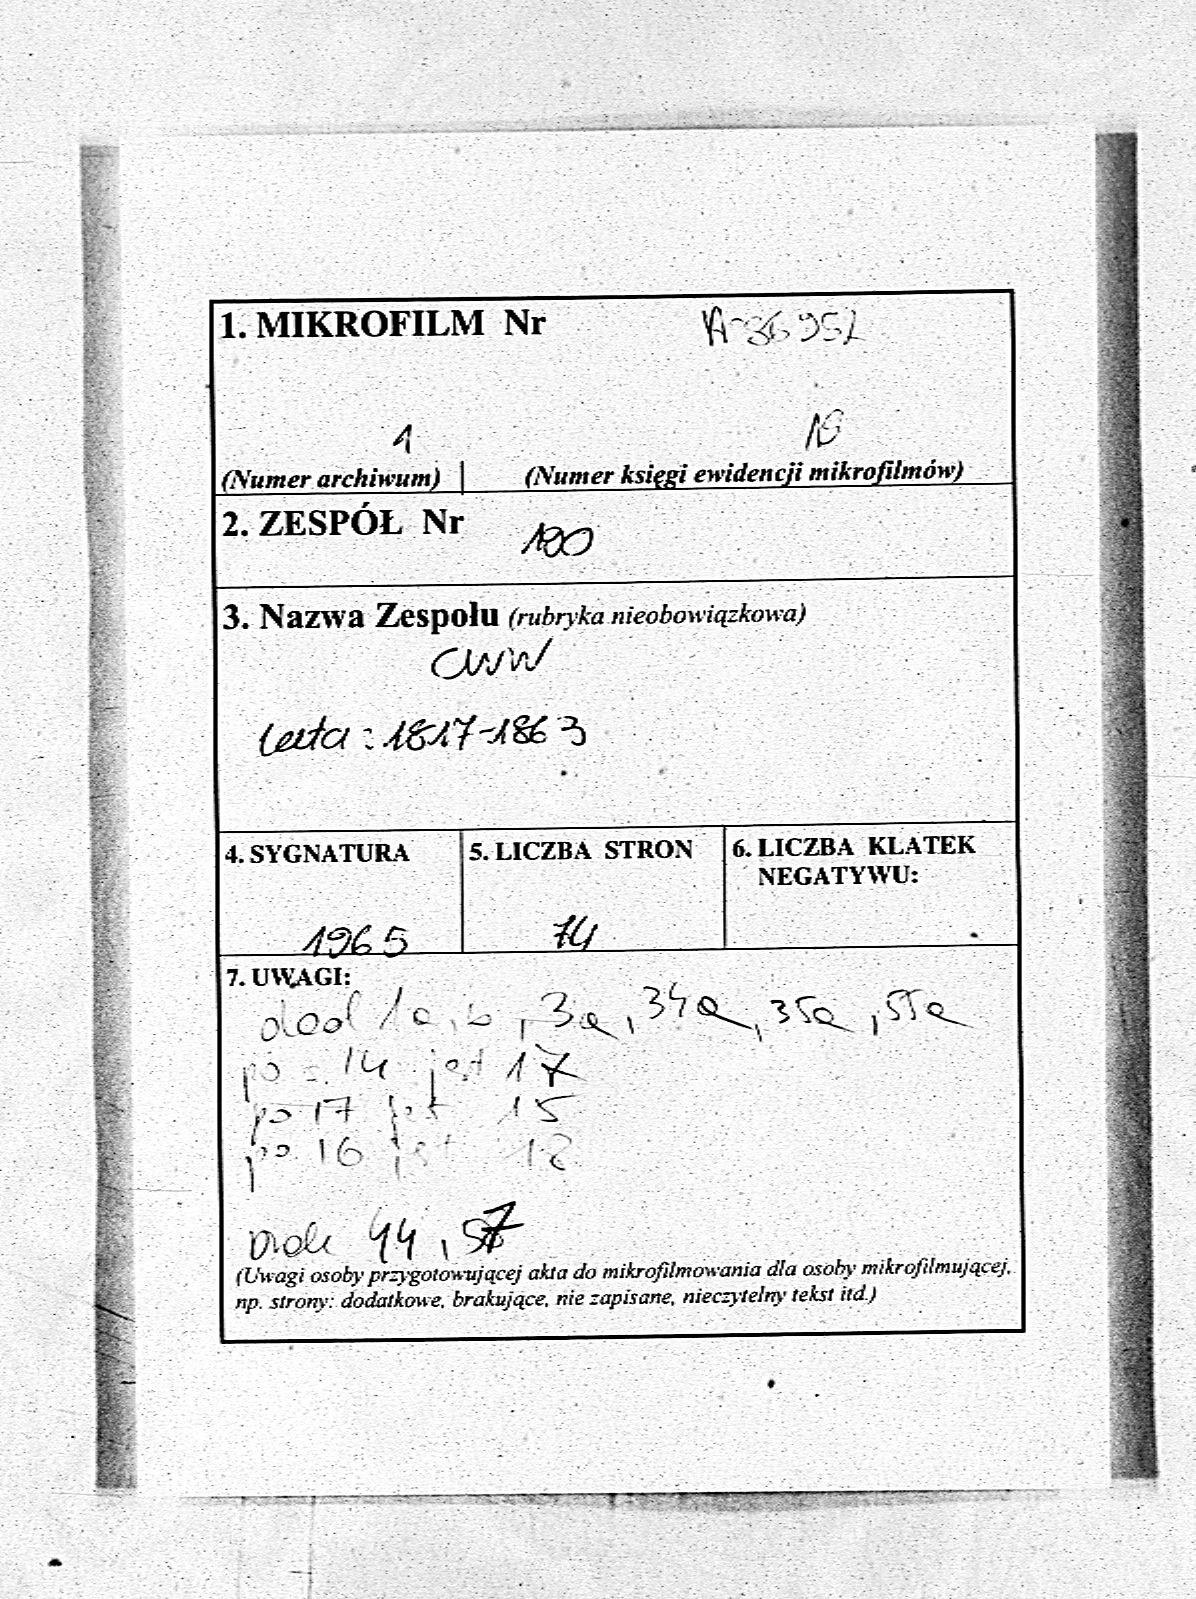 1. MIKROFILM Nr A-36952
1 18
(Numer archiwum) (Numer księgi ewidencji mikrofilmów)
2. ZESPÓŁ Nr 190
3. Nazwa Zespołu (rubryka nieobowiązkowa)
CWW
Lata : 1817-1863
4. SYGNATURA 5. LICZBA STRON 6. LICZBA KLATEK
NEGATYWU:
1965 74
7. UWAGI:
dod 1a, b, 3a, 34a, 35a, 55a
po s. 14 jest 17
po 17 jest 15
po 16 jest 18
brak 44, 57
(Uwagi osoby przygotowującej akta do mikrofilmowania dla osoby mikrofilmującej,
np. strony: dodatkowe, brakujące, nie zapisane, nieczytelny tekst itd.)